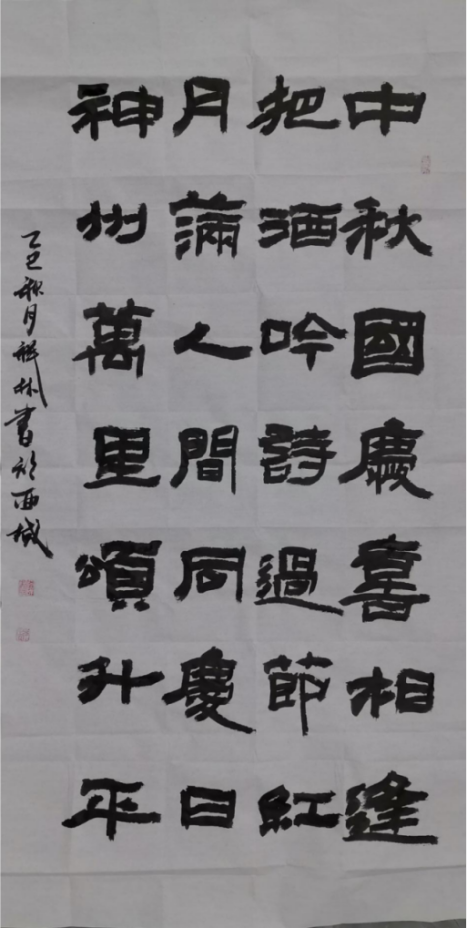 中秋國慶喜相逢
把酒吟詩過節紅
月滿人間同慶日
神州萬里頌升平
乙巳秋月 林書於西城